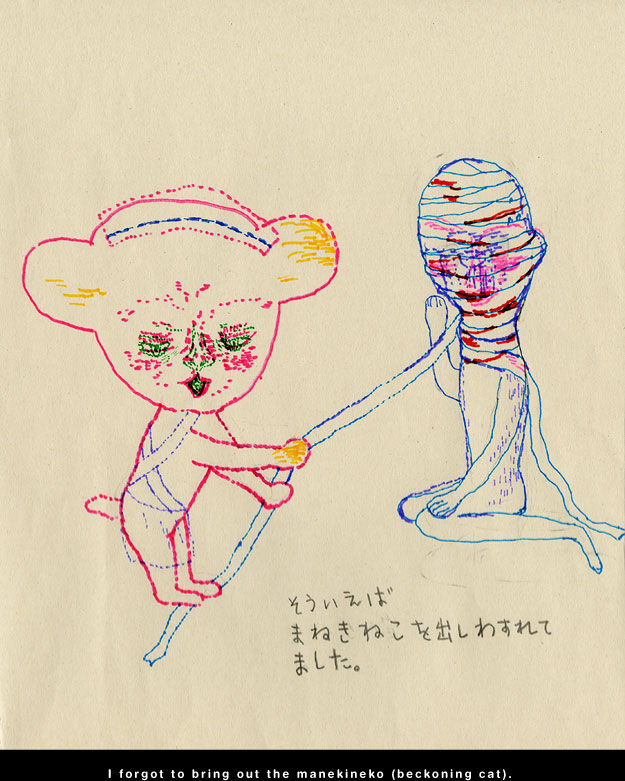 そういえば
まねきねこを出しわすれて
ました。
I forgot to bring out the manekineko (beckoning cat).